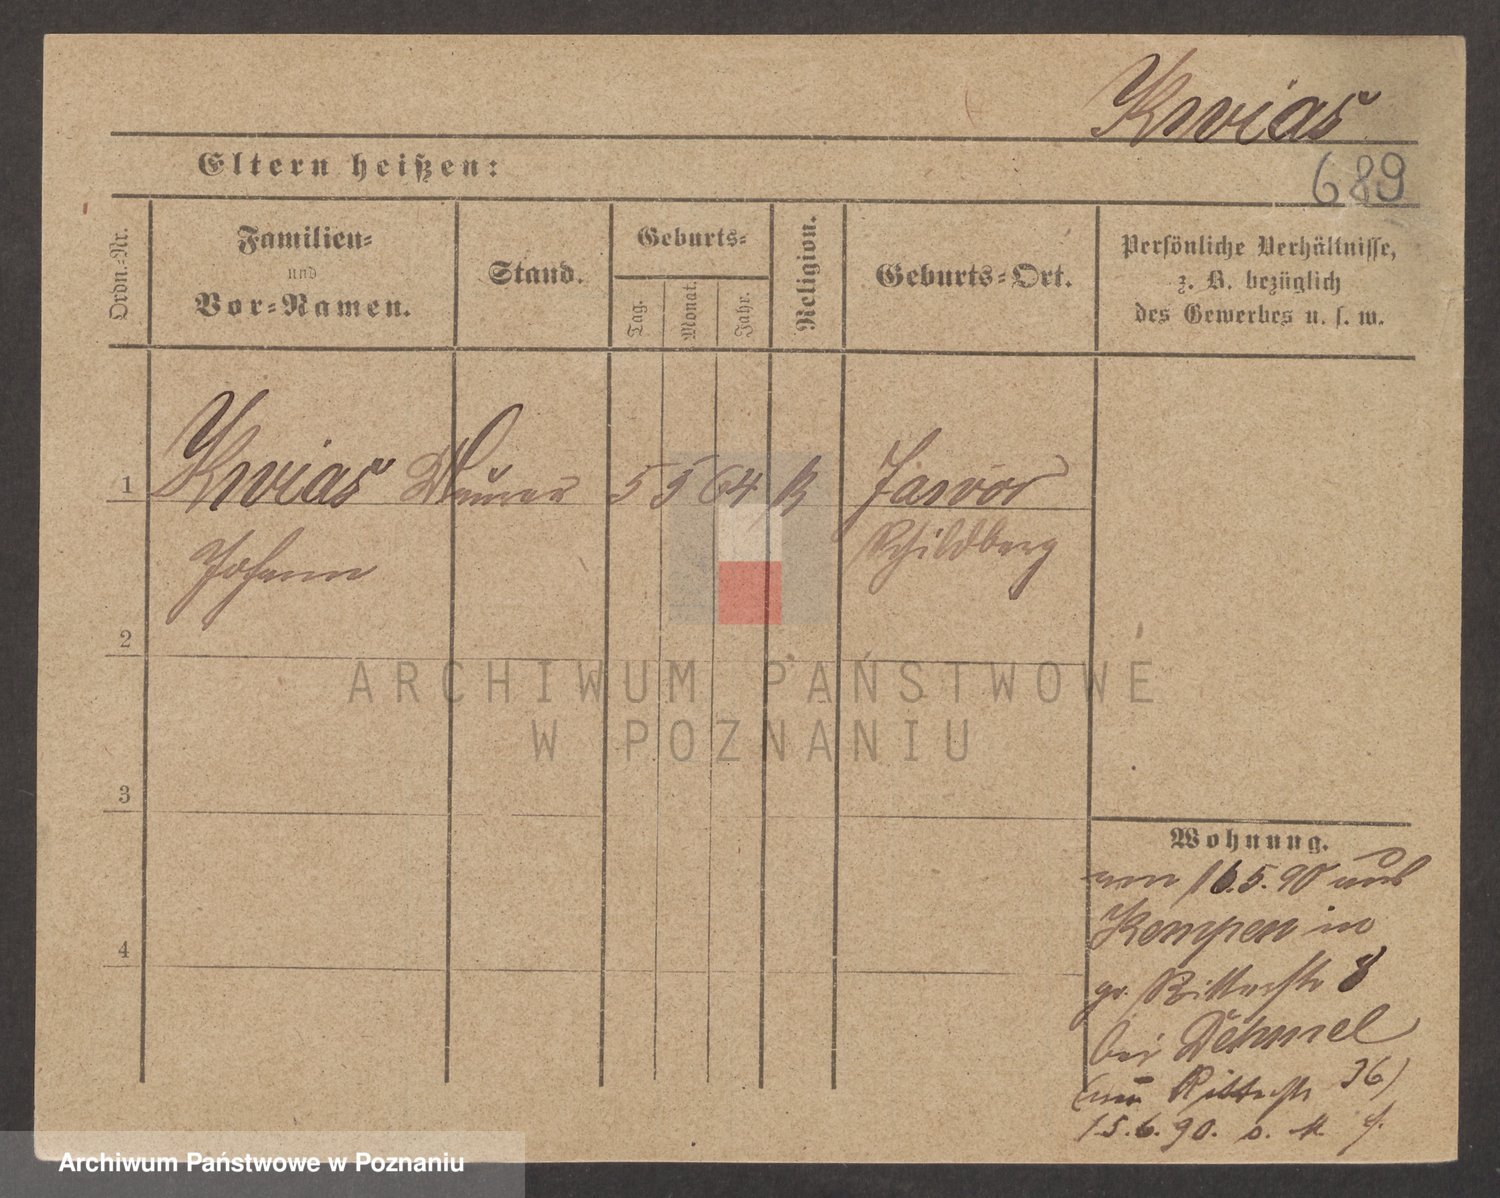 Kwias
Eltern heißen:
689
Ordn.-Nr.
Familien-
und
Vor-Namen.
Stand.
Geburts-
Tag.
Monat.
Jahr.
Religion.
Geburts-Ort.
Persönliche Verhältnisse,
z. B. bezüglich
des Gewerbes u. s. w.
1 Kwias 5 5 64 k
Johann Schildberg
2
ARCHIWUM PAŃSTWOWE
W POZNANIU
3
4
Wohnung.
16.5.90 aus
Kempen in
gr. Ritterstr 8
bei Dehmel
Ritterstr 36)
15.6.90.
Archiwum Państwowe w Poznaniu